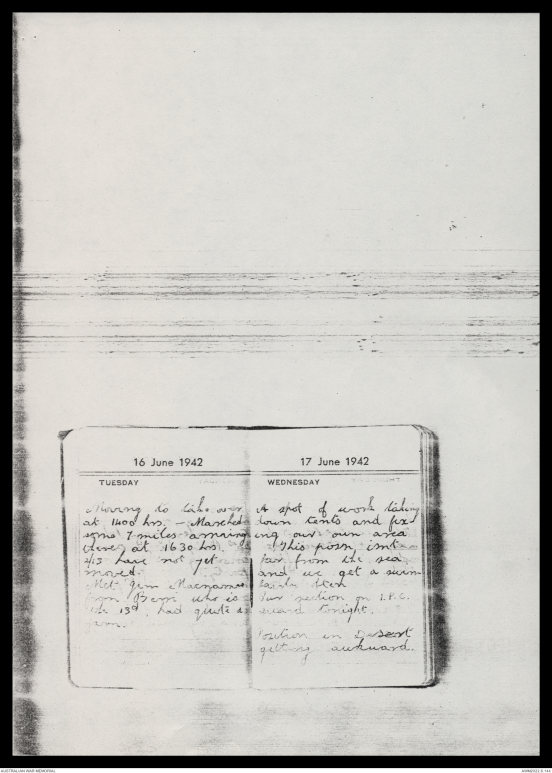 16 June 1942
TUESDAY
Moving to take over
at 1400 hrs. - Marched
some 7 miles arriving
there at 1630 hrs.
2/13 have not yet
moved.
Met Jim Macnamara
from Berri who is
the 13th, had quite a
yarn.
17 June 1942
WEDNESDAY
A spot of work taking
down tents and fix-
ing our own area
This posn isnt
far from the sea
and we get a swim
then
Our section on I.P.C.
guard tonight.
Position in Desert
getting awkward.
AUSTRALIAN WAR MEMORIAL